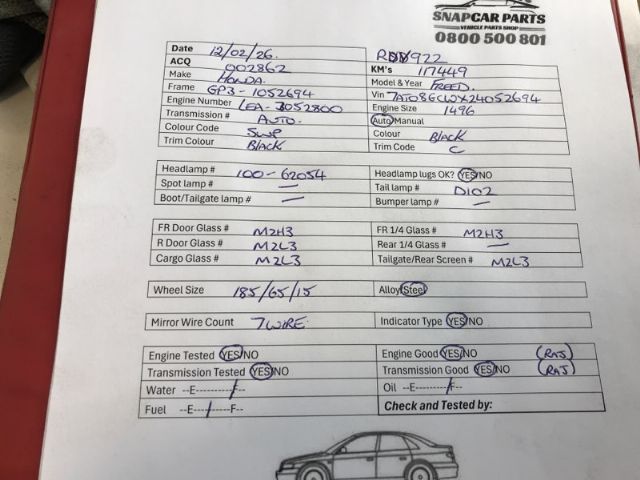 SNAPCAR PARTS
VEHICLE PARTS SHOP
0800 500 801
Date 12/02/26.
ACQ 002862 KM's 117449
Make HONDA. Model & Year FREED.
Frame GP3-1052694 Vin 7AT08GCWX24052694
Engine Number LEA-3052800 Engine Size 1496
Transmission # AUTO. Auto/Manual
Colour Code SWP Colour BLACK
Trim Colour BLACK Trim Code C
Headlamp # 100-62054 Headlamp lugs OK? YES/NO
Spot lamp # — Tail lamp # D102
Boot/Tailgate lamp # — Bumper lamp # —
FR Door Glass # M2H3 FR 1/4 Glass # M2H3
R Door Glass # M2L3 Rear 1/4 Glass # —
Cargo Glass # M2L3 Tailgate/Rear Screen # M2L3
Wheel Size 185/65/15 Alloy/Steel
Mirror Wire Count 7 WIRE. Indicator Type YES/NO
Engine Tested YES/NO Engine Good YES/NO (RAJ)
Transmission Tested YES/NO Transmission Good YES/NO (RAJ)
Water --E----------F-- Oil --E----------F--
Fuel --E----------F-- Check and Tested by: